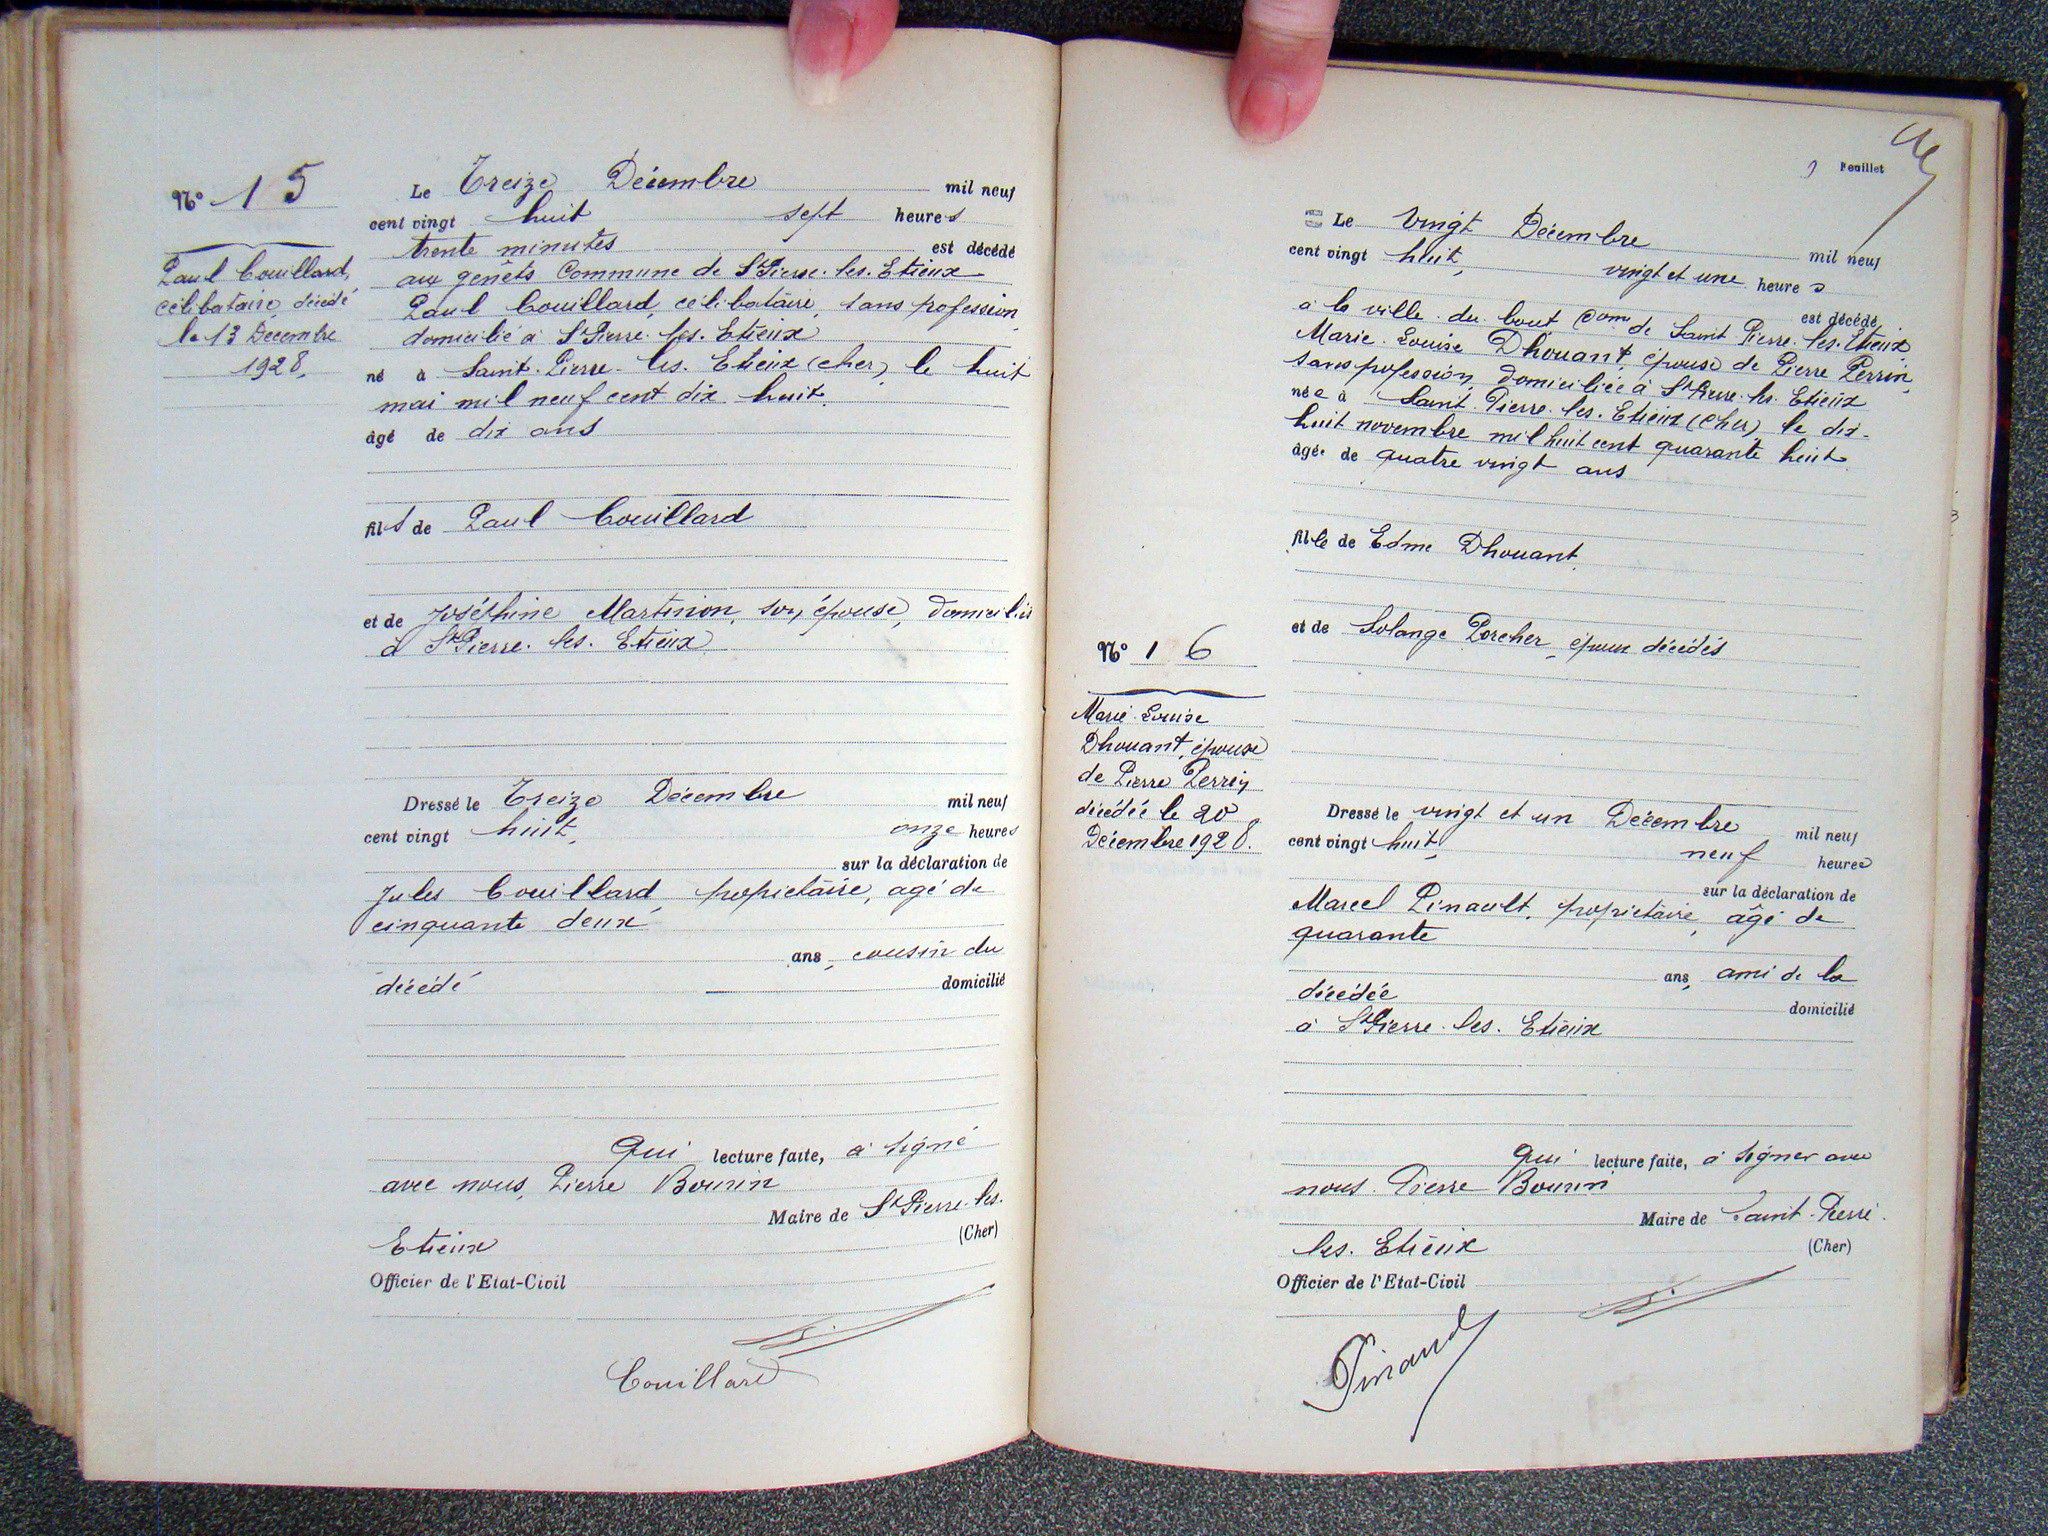 N° 15
Paul Couillard,
célibataire, décédé
le 13 Décembre
1928.
Le Treize Décembre mil neuf
cent vingt huit sept heures
trente minutes est décédé
aux genêts Commune de St Pierre-les-Etieux
Paul Couillard, célibataire, sans profession,
domicilié à St Pierre-les-Etieux
né à Saint-Pierre-les-Etieux (Cher), le huit
mai mil neuf cent dix huit.
âgé de dix ans
fils de Paul Couillard
et de Joséphine Martinon, son épouse, domiciliés
à St Pierre-les-Etieux
Dressé le Treize Décembre mil neuf
cent vingt huit, onze heures
sur la déclaration de
Jules Couillard, propriétaire, agé de
cinquante deux
ans, cousin du
décédé domicilié
Qui lecture faite, a signé
avec nous, Pierre Bourin
Maire de St Pierre-les-
Etieux (Cher)
Officier de l'Etat-Civil
Couillard
Feuillet
Le Vingt Décembre mil neuf
cent vingt huit, vingt et une heures
est décédé
à la ville du bout Com de Saint Pierre-les-Etieux
Marie-Louise Dhouant, épouse de Pierre Perrin,
sans profession, domiciliée à St Pierre-les-Etieux
née à Saint-Pierre-les-Etieux (Cher) le dix-
huit novembre mil huit cent quarante huit
âgée de quatre vingt ans
fille de Edme Dhouant,
et de Solange Porcher, époux décédés
N° 16
Marie-Louise
Dhouant, épouse
de Pierre Perrin
décédée le 20
Décembre 1928.
Dressé le vingt et un Décembre mil neuf
cent vingt huit, neuf heures
sur la déclaration de
Marcel Pinault, propriétaire, âgé de
quarante
ans, ami de la
décédée domicilié
à St Pierre-les-Etieux
Qui lecture faite, a signer avec
nous Pierre Bourin
Maire de Saint-Pierre-
les-Etieux (Cher)
Officier de l'Etat-Civil